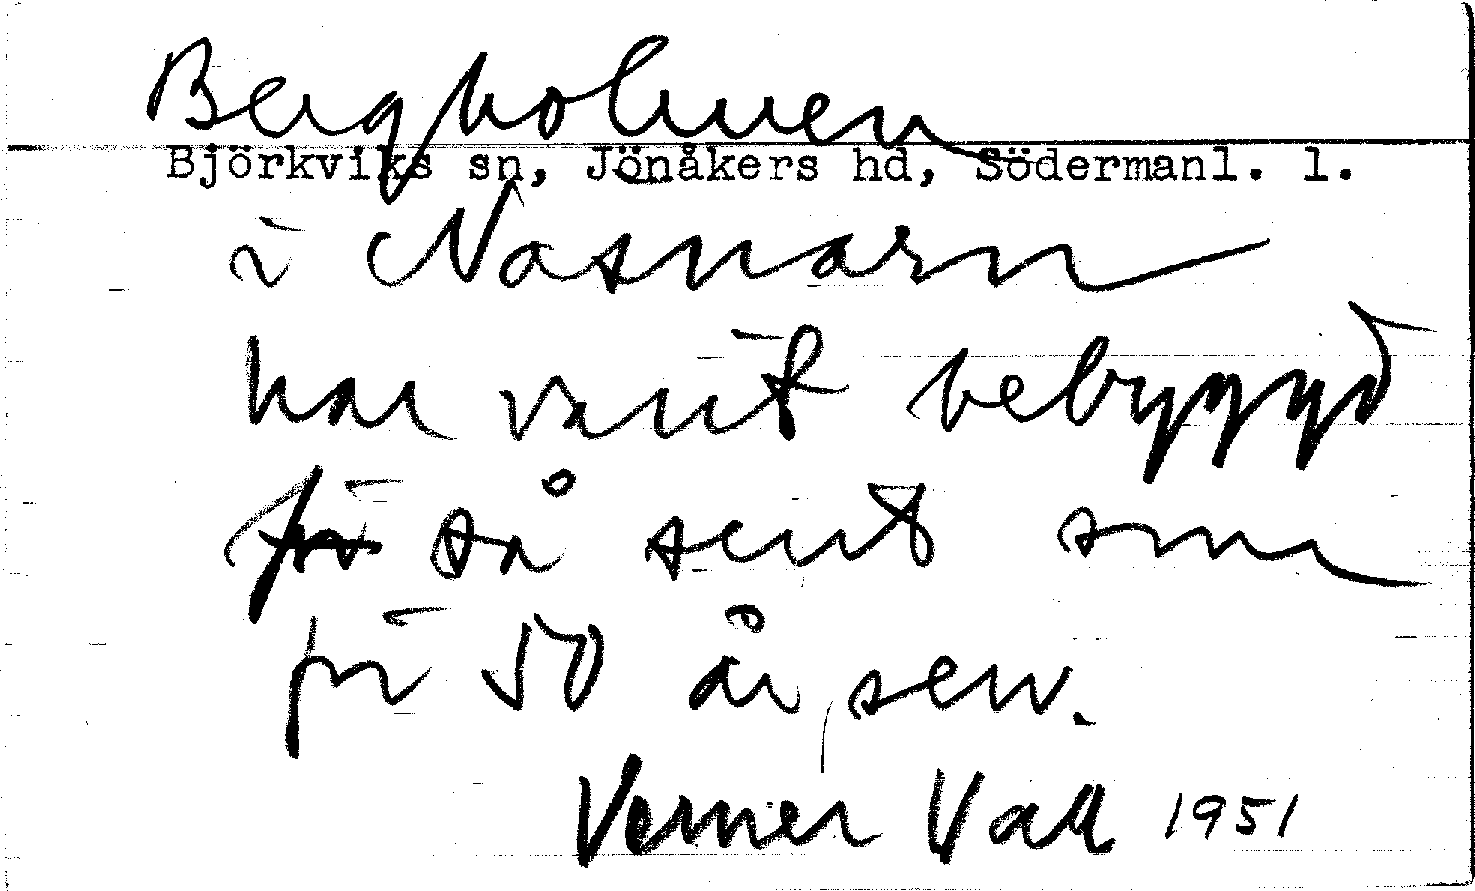 Bergholmen
Björkviks sn, Jönåkers hd, Södermanl. l.
i Nasnarn
har varit bebyggd
för så sent som
för 50 år sen.
Verner Vall 1951